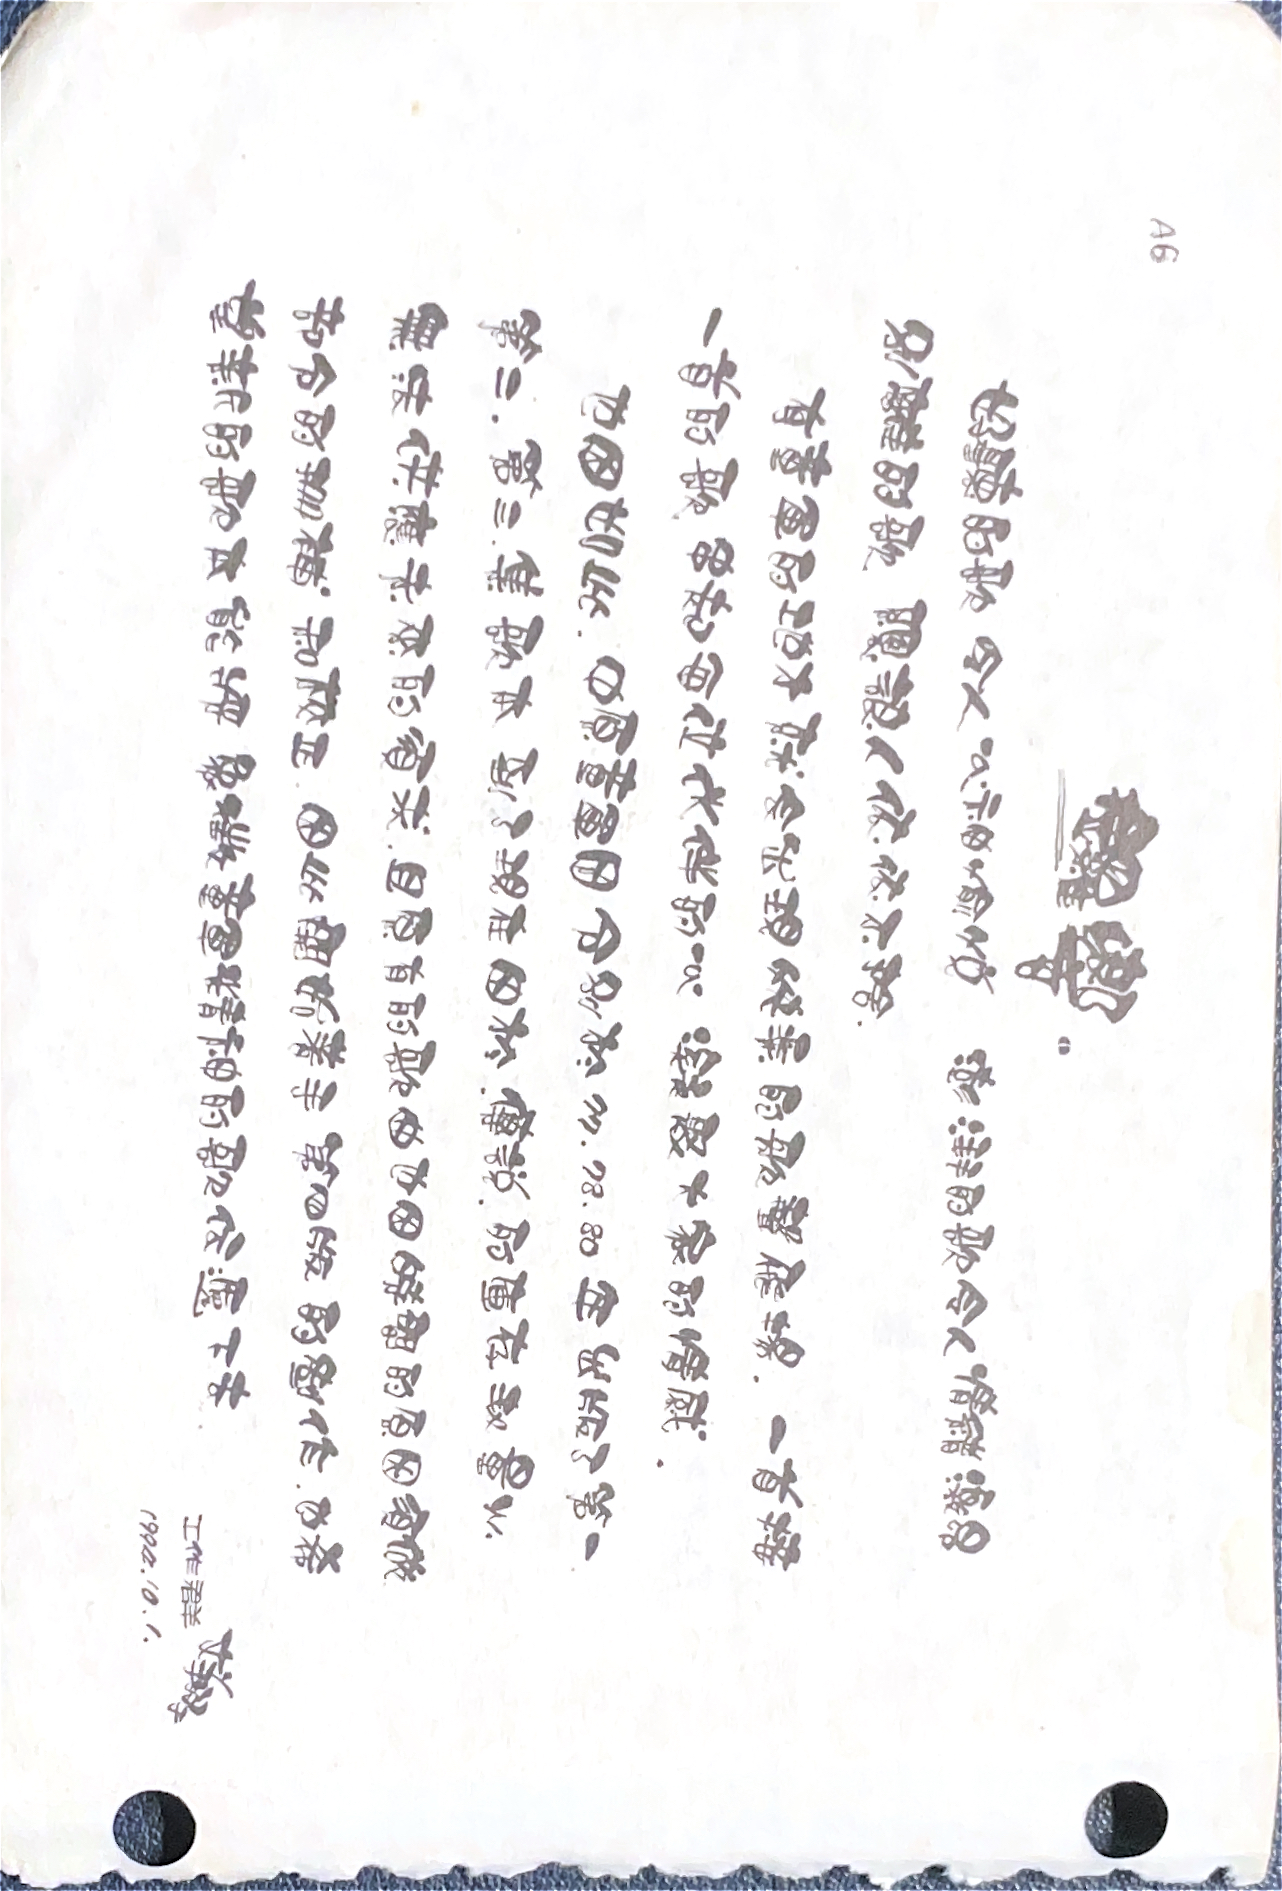 A6
好聽的歌 令人心神愉悅 澎湃的歌令人情緒激昂
別離的歌 眼讓人依依不捨.
有童軍的地方就會出現快樂的歌聲飛揚. 一首接
一首的歌 串起每位伙伴的心 凝聚大家的情感.
也因如此. 中原童軍團 分別於 77. 78. 80 年出版了第一
第二. 第三. 集歌本 到了現在因於.傳說.的庫存數量少
無法供應未來的須求.且原有的歌曲也因時間的原因須做
部分的刪補 和校正. 因此開始著手 第四版 的製作.也希
望新的歌本能將 象徵童軍精神的歌傳遞下去.
工作群
1994.10.1.